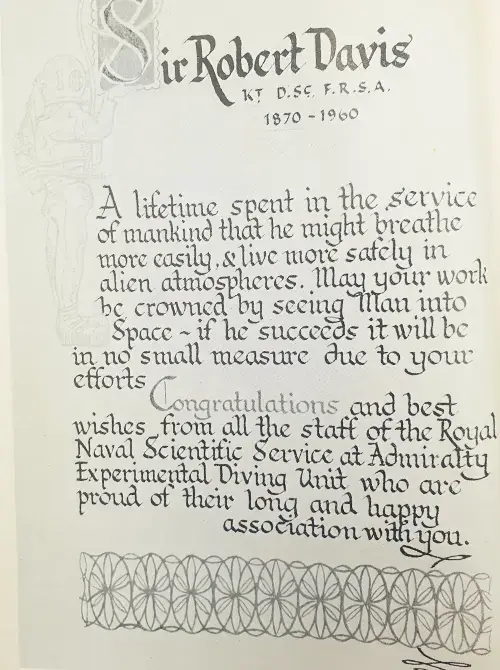 Sir Robert Davis
KT D.SC. F.R.S.A.
1870 - 1960
A lifetime spent in the service
of mankind that he might breathe
more easily, & live more safely in
alien atmospheres. May your work
be crowned by seeing Man into
Space ~ if he succeeds it will be
in no small measure due to your
efforts
Congratulations and best
wishes from all the staff of the Royal
Naval Scientific Service at Admiralty
Experimental Diving Unit who are
proud of their long and happy
association with you.